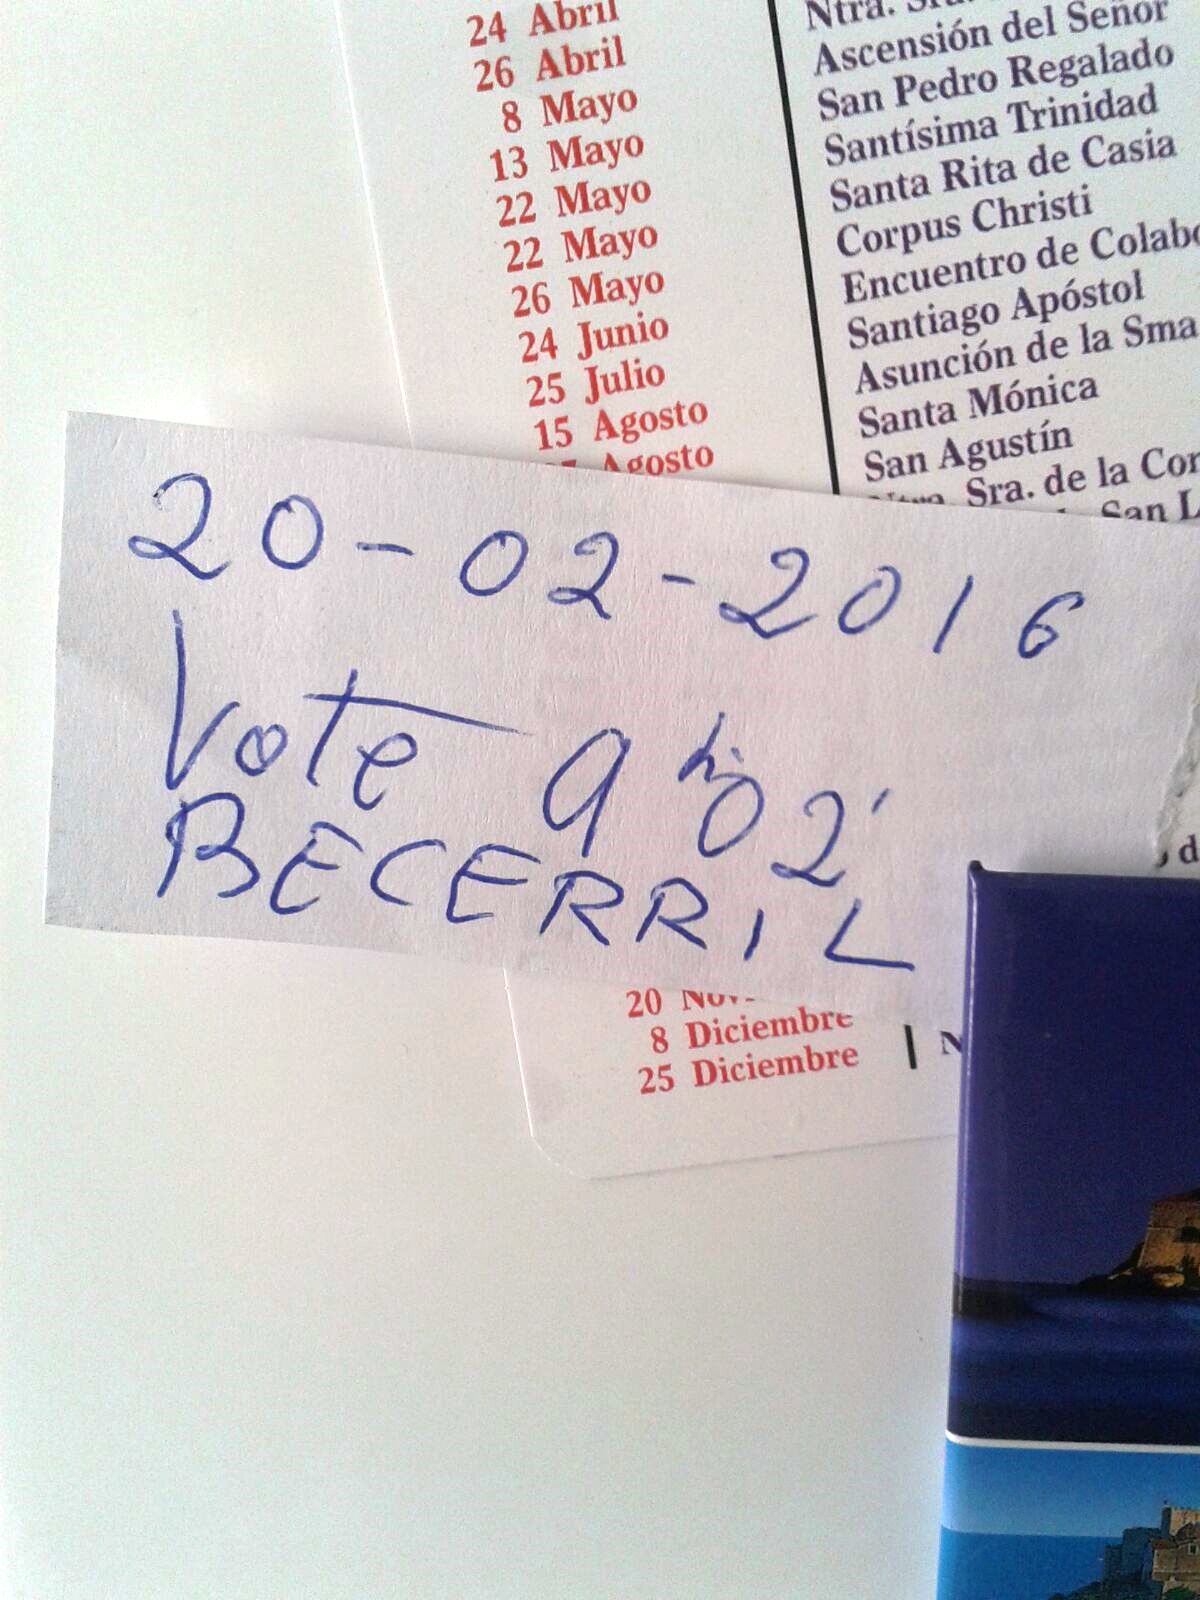 24 Abril
26 Abril
8 Mayo
13 Mayo
22 Mayo
22 Mayo
26 Mayo
24 Junio
25 Julio
15 Agosto
Agosto
Ntra.
Ascensión del Señor
San Pedro Regalado
Santísima Trinidad
Santa Rita de Casia
Corpus Christi
Encuentro de
Santiago Apóstol
Asunción de la Sma
Santa Mónica
San Agustín
Sra. de la
San
20-02-2016
Vote 9 h 02'
BECERRIL
20
8 Diciembre
25 Diciembre